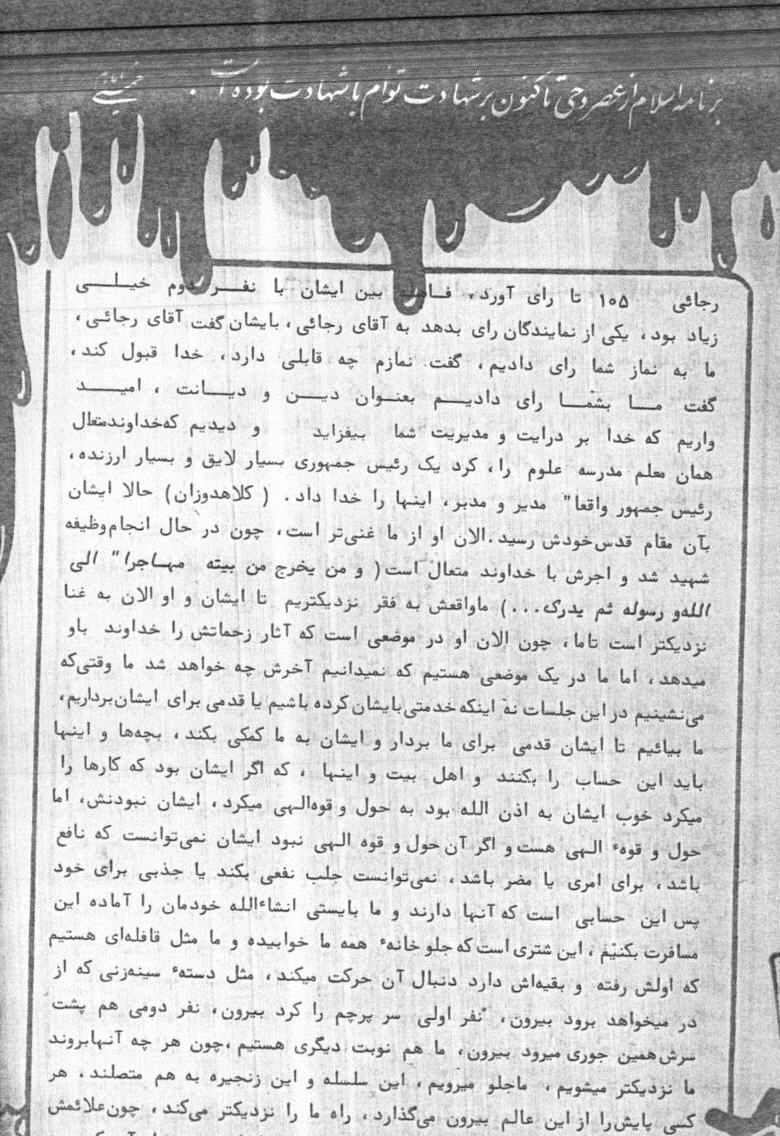 برنامه اسلام از عصر وحی تاکنون بر شهادت توام با شهادت بوده است .
رجائی ۱۰۵ تا رای آورد، فاصله بین ایشان با نفـــر دوم خیلـــی
زیاد بود، یکی از نمایندگان رای بدهد به آقای رجائی، بایشان گفت آقای رجائی،
ما به نماز شما رای دادیم، گفت نمازم چه قابلی دارد، خدا قبول کند،
گفت مـا بشمـا رای دادیــم بعنـوان دیـن و دیـانت ، امیـــد
واریم که خدا بر درایت و مدیریت شما بیفزاید و دیدیم که‌خداوندمتعال
همان معلم مدرسه علوم را، کرد یک رئیس جمهوری بسیار لایق و بسیار ارزنده،
رئیس جمهور واقعا" مدیر و مدبر، اینها را خدا داد. ( کلاهدوزان) حالا ایشان
بآن مقام قدس‌خودش رسید.الان او از ما غنی‌تر است، چون در حال انجام‌وظیفه
شهید شد و اجرش با خداوند متعال است( و من یخرج من بیته مهـاجرا" الی
الله‌و رسوله ثم یدرک...) ماواقعش به فقر نزدیکتریم تا ایشان و او الان به غنا
نزدیکتر است تاما، چون الان او در موضعی است که آثار زحماتش را خداوند باو
میدهد، اما ما در یک موضعی هستیم که نمیدانیم آخرش چه خواهد شد ما وقتی‌که
می‌نشینیم در این جلسات نه اینکه خدمتی بایشان کرده باشیم یا قدمی برای ایشان‌برداریم،
ما بیائیم تا ایشان قدمی برای ما بردار و ایشان به ما کمکی بکند، بچه‌ها و اینها
باید این حساب را بکنند و اهل بیت و اینها ، که اگر ایشان بود که کارها را
میکرد خوب ایشان به اذن الله بود به حول و قوه‌الهی میکرد، ایشان نبودنش، اما
حول و قوهٔ الهی هست و اگر آن حول و قوه الهی نبود ایشان نمی‌توانست که نافع
باشد، برای امری یا مضر باشد، نمی‌توانست جلب نفعی بکند یا جذبی برای خود
پس این حسابی است که آنها دارند و ما بایستی انشاءالله خودمان را آماده این
مسافرت بکنیم، این شتری است که جلو خانهٔ همه ما خوابیده و ما مثل قافله‌ای هستیم
که اولش رفته و بقیه‌اش دارد دنبال آن حرکت میکند، مثل دستهٔ سینه‌زنی که از
در میخواهد برود بیرون، نفر اولی سر پرچم را کرد بیرون، نفر دومی هم پشت
سرش‌همین جوری میرود بیرون، ما هم نوبت دیگری هستیم ،چون هر چه آنهابروند
ما نزدیکتر میشویم، ماجلو میرویم، این سلسله و این زنجیره به هم متصلند. هر
کسی پایش‌را از این عالم بیرون می‌گذارد، راه ما را نزدیکتر می‌کند، چون‌علائمش